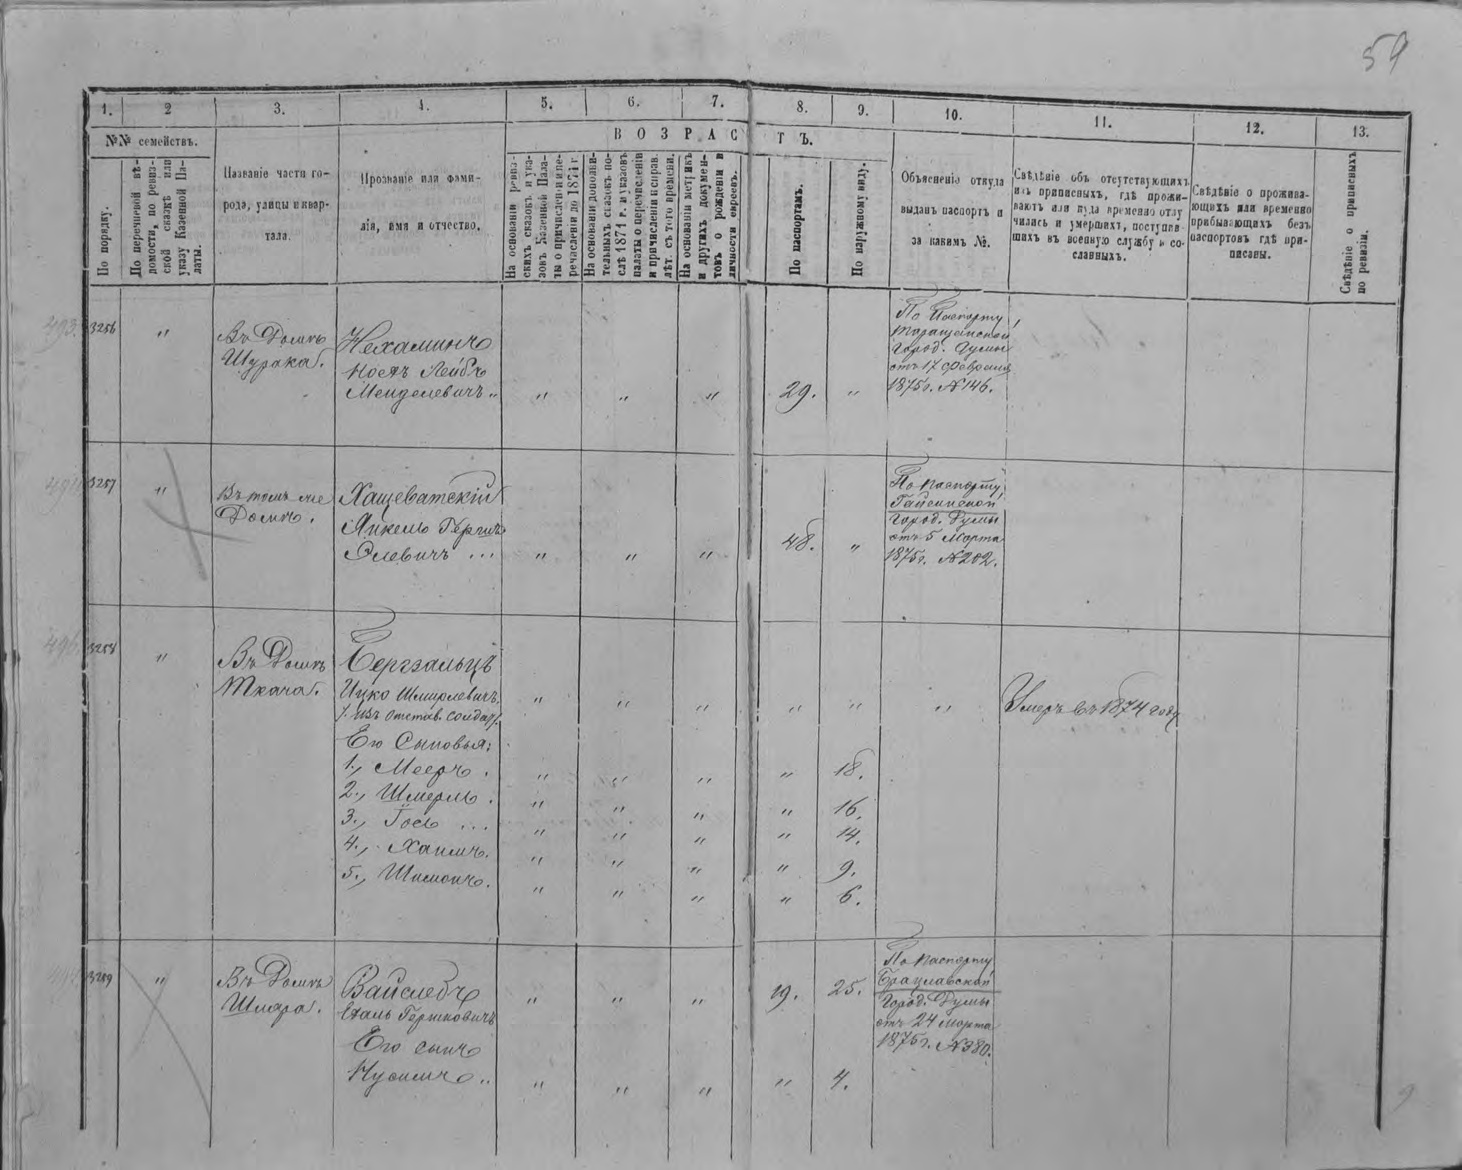 59
1. 2 3. 4. 5. 6. 7. 8. 9. 10. 11. 12. 13.
№№ семействъ.
В О З Р А С Т Ъ.
По порядку.
По перечневой вѣ-
домости, по ревиз-
ской сказкѣ или
указу Казенной Па-
латы.
Названіе части го-
рода, улицы и квар-
тала.
Прозваніе или фами-
лія, имя и отчество.
На основаніи ревиз-
скихъ сказокъ и ука-
зовъ Казенной Пала-
ты о причисленіи и пе-
речисленіи до 1874 г.
На основаніи дополни-
тельныхъ сказокъ по-
слѣ 1874 г. и указовъ
палаты о перечисленіи
и причисленіи и справ.
лѣт. съ того времени.
На основаніи метрикъ
и другихъ докумен-
товъ о рожденіи и
личности евреевъ.
По паспортамъ.
По наружному виду.
Объясненіе откуда
выданъ паспортъ и
за какимъ №.
Свѣдѣніе объ отсутствующихъ
изъ приписныхъ, гдѣ прожи-
ваютъ или куда временно отлу
чились и умершихъ, поступив-
шихъ въ военную службу и со-
сланныхъ.
Свѣдѣніе о прожива-
ющихъ или временно
прибывающихъ безъ
паспортовъ гдѣ при-
писаны.
Свѣдѣніе о приписныхъ
по ревизіи.
493. 3256 " Въ Домѣ
Шурака.
Нехаминъ
Лейбъ
Менделевичъ " " " " 29. "
По Паспорту
Таращанской
Город. Думы
отъ 17 Февраля
1875г. №146.
3257 " Въ томъ же
Домѣ.
Хащеватскій
Янкель Гершъ
Элевичъ ... " " " 48. "
По паспорту,
Гайсинской
Город. Думы
отъ 5 Марта
1875г. №202.
3258 " Въ Домѣ
Ткача.
Бергзальцъ
Ицко Шмирлевичъ " " " " " " Умеръ въ 1874 году
/. изъ отстав. солдат/.
Его Сыновья:
1., Мееръ . " " " " 18.
2., Шмерль . " " " " 16.
3., Іось ... " " " " 14.
4., Хаимъ. " " " " 9.
5., Шимонъ. " " " " 6.
3259 " Въ Домѣ
Шляра.
Вайслебъ " " " 19. 25.
Гершковичъ
Его сынъ
Нусимъ .. " " " " 4.
По паспорту
Брацлавской
Город. Думы
отъ 24 Марта
1875г. №380.